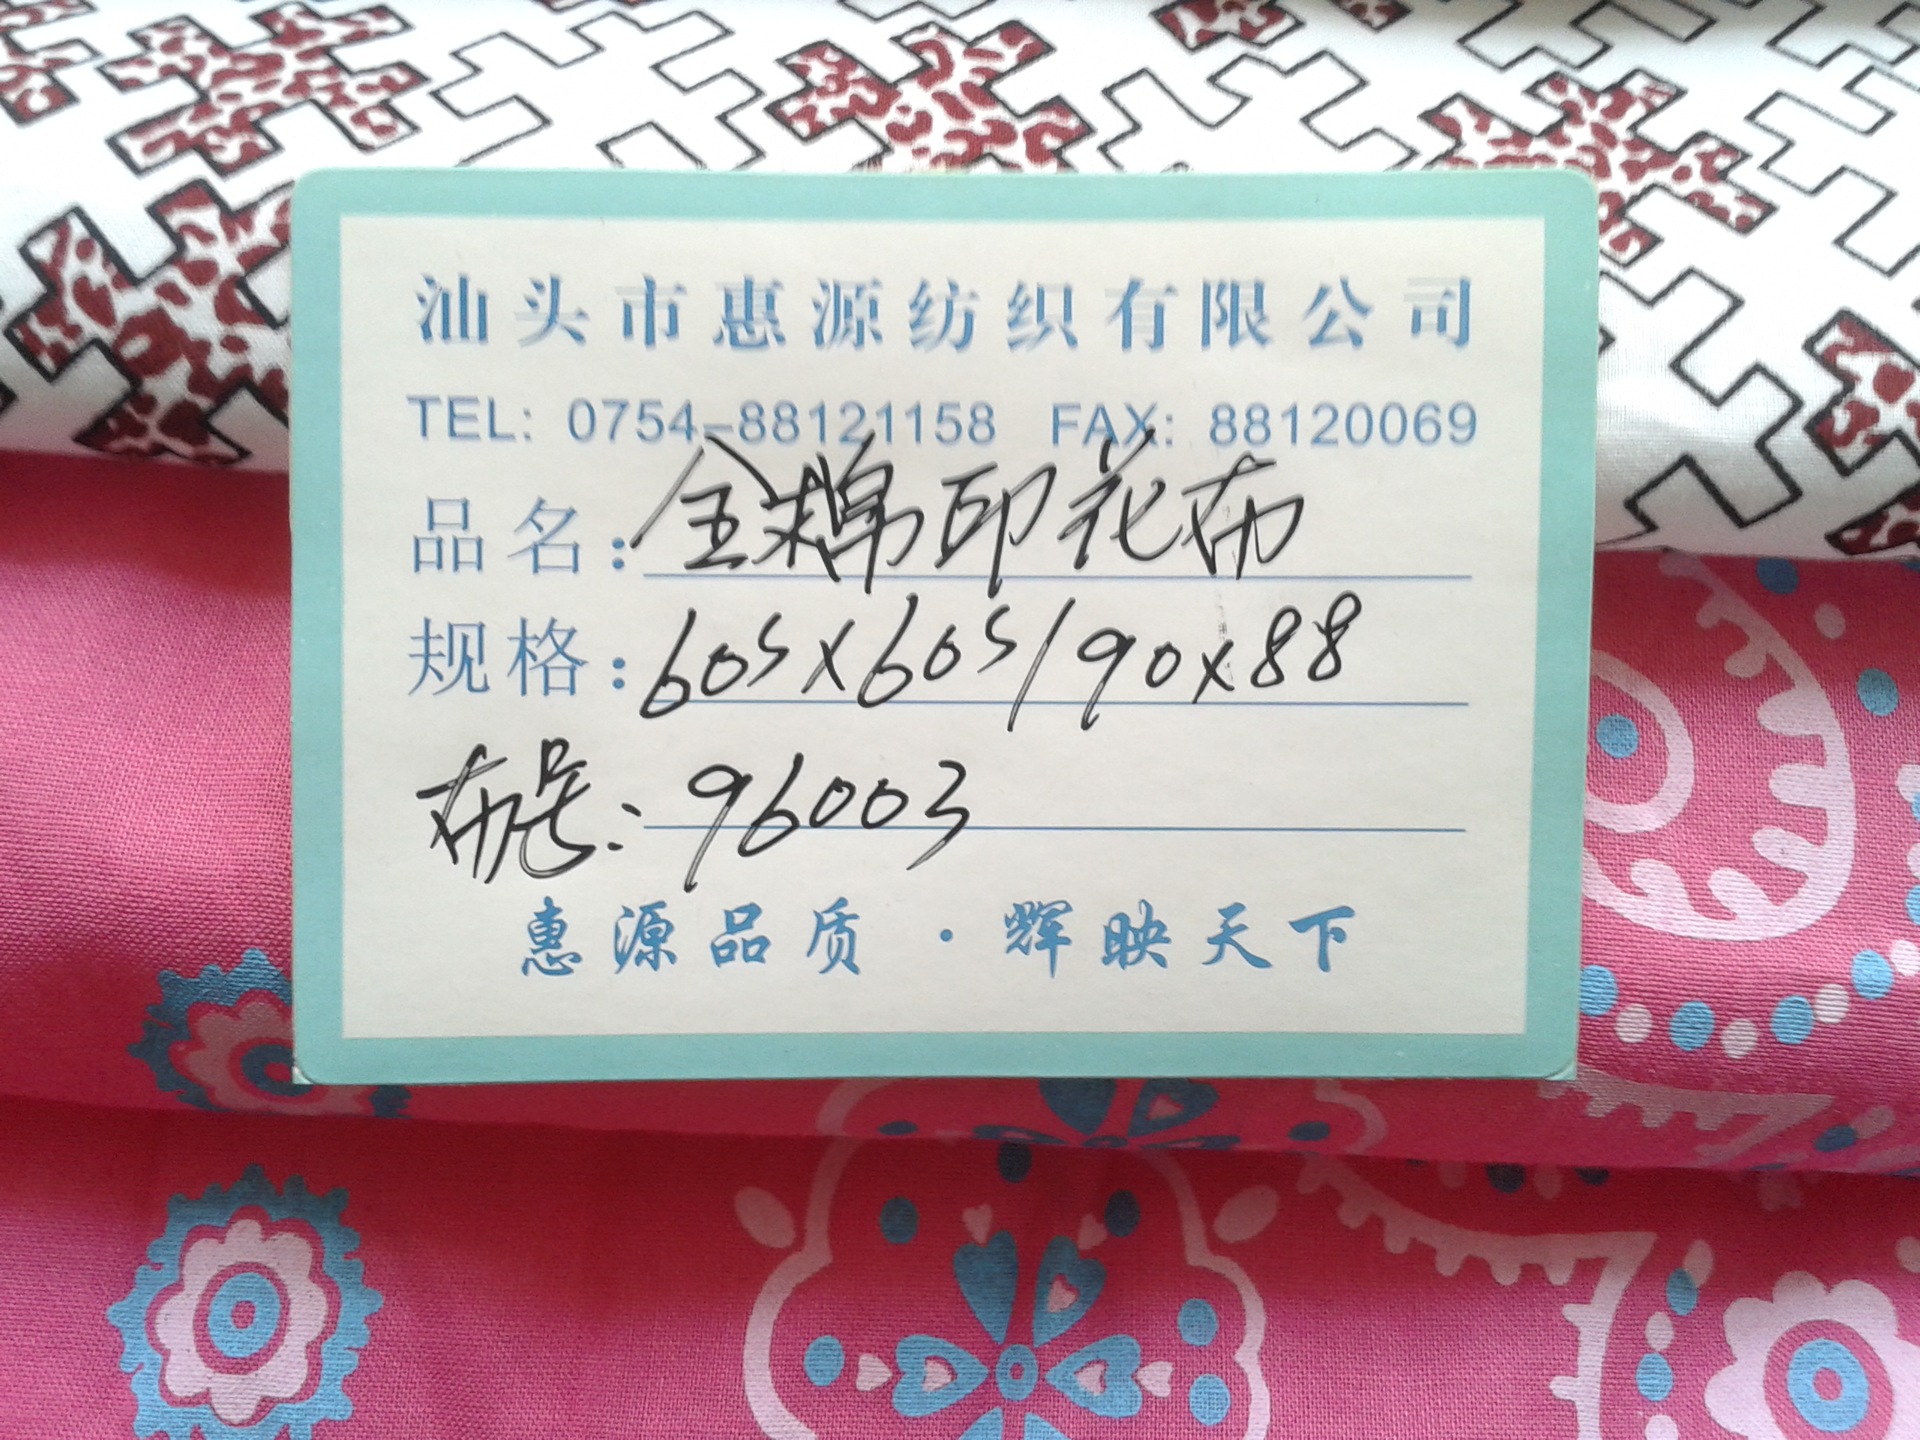 汕头市惠源纺织有限公司
TEL: 0754-88121158 FAX: 88120069
品名:全棉印花布
规格:60s×60s/90×88
布号:96003
惠源品质·辉映天下